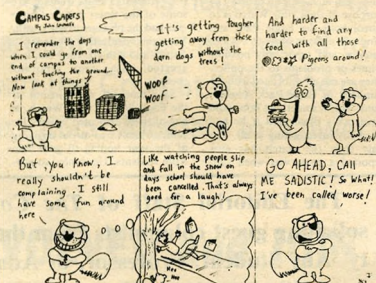 CAMPUS CAPERS
By John
I remember the days
when I could go from one
end of campus to another
without touching the ground.
Now look at things!
WOOF
WOOF
It's getting tougher
getting away from these
darn dogs without the
trees!
And harder and
harder to find any
food with all those
Pigeons around!
But, you know, I
really shouldn't be
complaining. I still
have some fun around
here.
Like watching people slip
and fall in the snow on
days school should have
been cancelled. That's always
good for a laugh!
GO AHEAD, CALL
ME SADISTIC! So What!
I've been called worse!